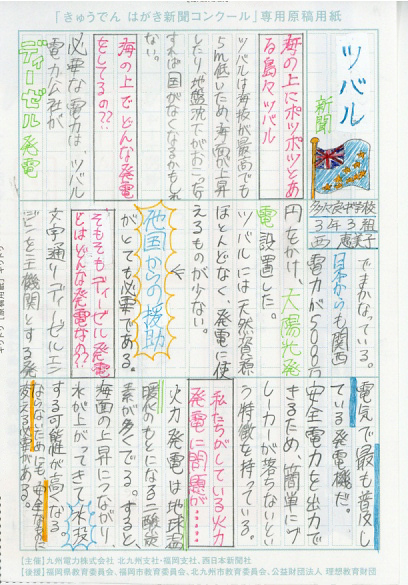 「きゅうでん はがき新聞コンクール」専用原稿用紙
ツバル
新聞
多々良中学校
3年3組
西 恵美子
海の上にポツポツとあ
る島々ツバル
ツバルは海抜が最高でも
5m低いため、海面が上昇
したり地盤沈下がおこったり
すれば国がなくなるかもしれ
ない。
海の上でどんな発電
をしてるの??
必要な電力は、ツバル
電力公社が
ディーゼル発電
でまかなっている。
日本からも関西
電力が5000万
円をかけ、太陽光発
電設置した。
ツバルには天然資源
ほとんどなく、発電に使
えるものが少ない。
他国からの援助
がとても必要である。
そもそもディーゼル発電
とはどんな発電なの??
文字通りディーゼルエン
ジンを主機関とする発
電気で最も普及し
ている発電機だ。
安全電力を出力で
きるため、簡単にブ
レーカーが落ちないとい
う特徴を持っている。
私たちがしている火力
発電に問題が……
火力発電は地球温
暖化のもとになる二酸化炭
素が多くでる。すると、
海面の上昇につながり
水が上がってきて水没
する可能性が高くなる。
ならないためにも安全な
考える必要がある。
[主催]九州電力株式会社 北九州支社・福岡支社、西日本新聞社
[後援]福岡県教育委員会、福岡市教育委員会、北九州市教育委員会、公益財団法人 理想教育財団